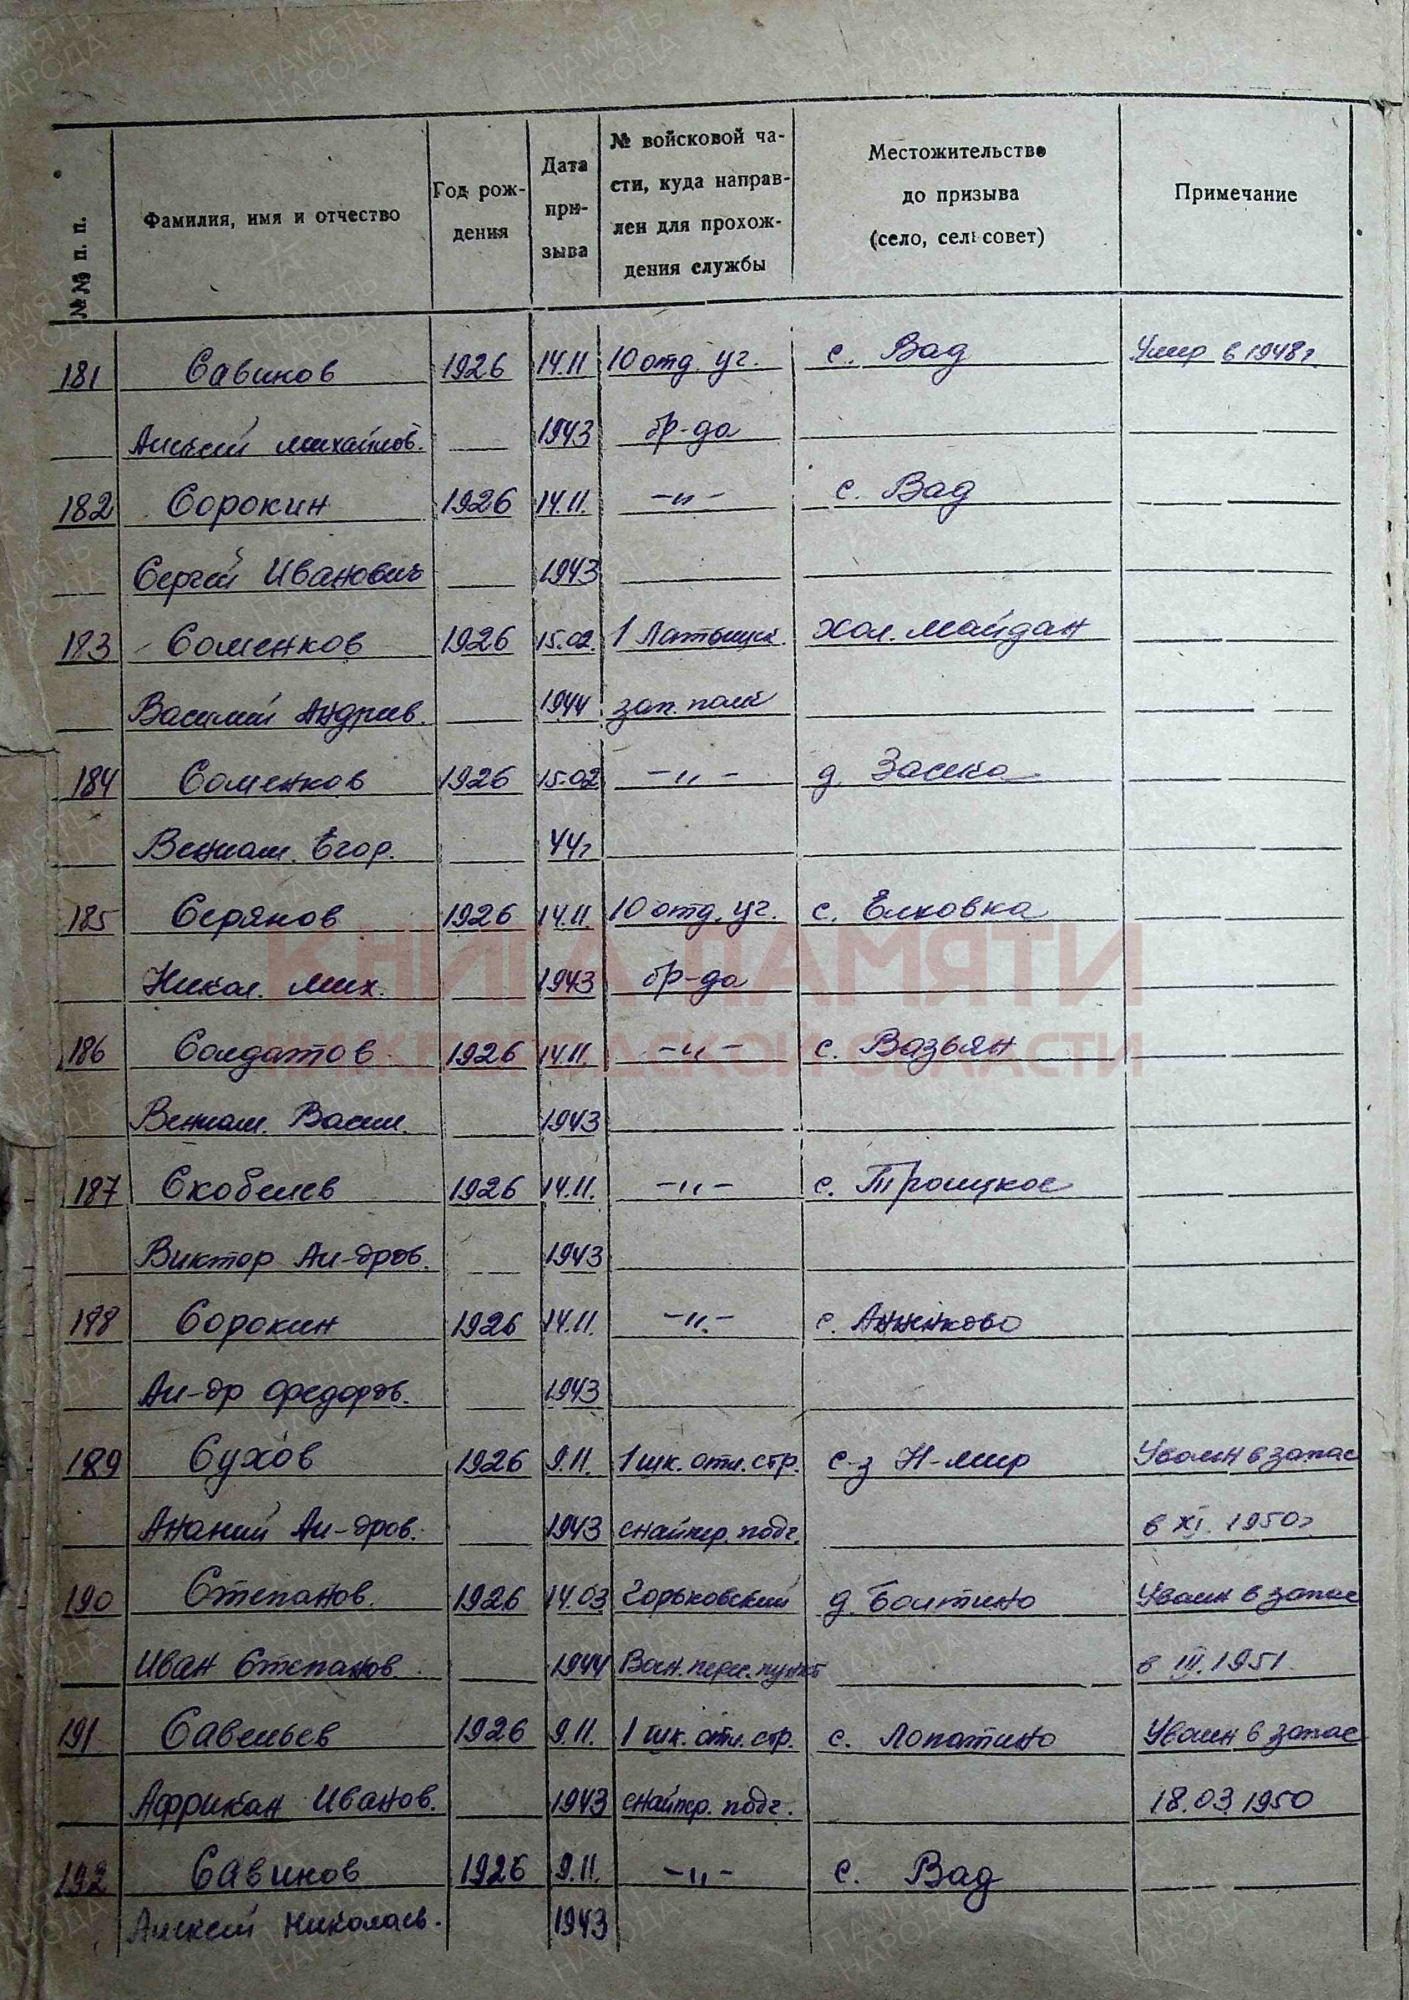 №№ п. п. Фамилия, имя и отчество Год рож- дения Дата при- зыва № войсковой ча- сти, куда направ- лен для прохож- дения службы Местожительство до призыва (село, сельсовет) Примечание
181 Савинов 1926 14.11 10 отд. уч. с. Вад Умер в 1948г.
Алексей Михайлов. 1943 бр-да
182 Сорокин 1926 14.11. -"- с. Вад
Сергей Иванович 1943
183 Соменков 1926 15.02. 1 Латышск. Хол. Майдан
Василий Андреев. 1944 зап. полк
184 Соменков 1926 15.02 -"- д. Засека
Вениам. Егор. 44г
185 Серянов 1926 14.11. 10 отд. уч. с. Елховка
Никол. Мих. 1943 бр-да
186 Солдатов 1926 14.11. -"- с. Вазьян
Вениам. Васил. 1943
187 Скобелев 1926 14.11. -"- с. Троицкое
Виктор Ал-дров. 1943
188 Сорокин 1926 14.11. -"- с. Анненково
Ал-др Федоров. 1943
189 Сухов 1926 9.11. 1 шк. отл. стр. с-з Н-мир Уволен в запас
Ананий Ал-дров. 1943 снайпер. подг. в XI. 1950г
190 Степанов. 1926 14.03 Горьковский д. Болтино Уволен в запас
Иван Степанов. 1944 Воен. перес. пункт в III. 1951.
191 Савельев 1926 9.11. 1 шк. отл. стр. с. Лопатино Уволен в запас
Африкан Иванов. 1943 снайпер. подг. 18.03.1950
192 Савинов 1926 9.11. -"- с. Вад
Алексей Николаев. 1943
КНИГА ПАМЯТИ
НИЖЕГОРОДСКОЙ ОБЛАСТИ
ПАМЯТЬ
НАРОДА